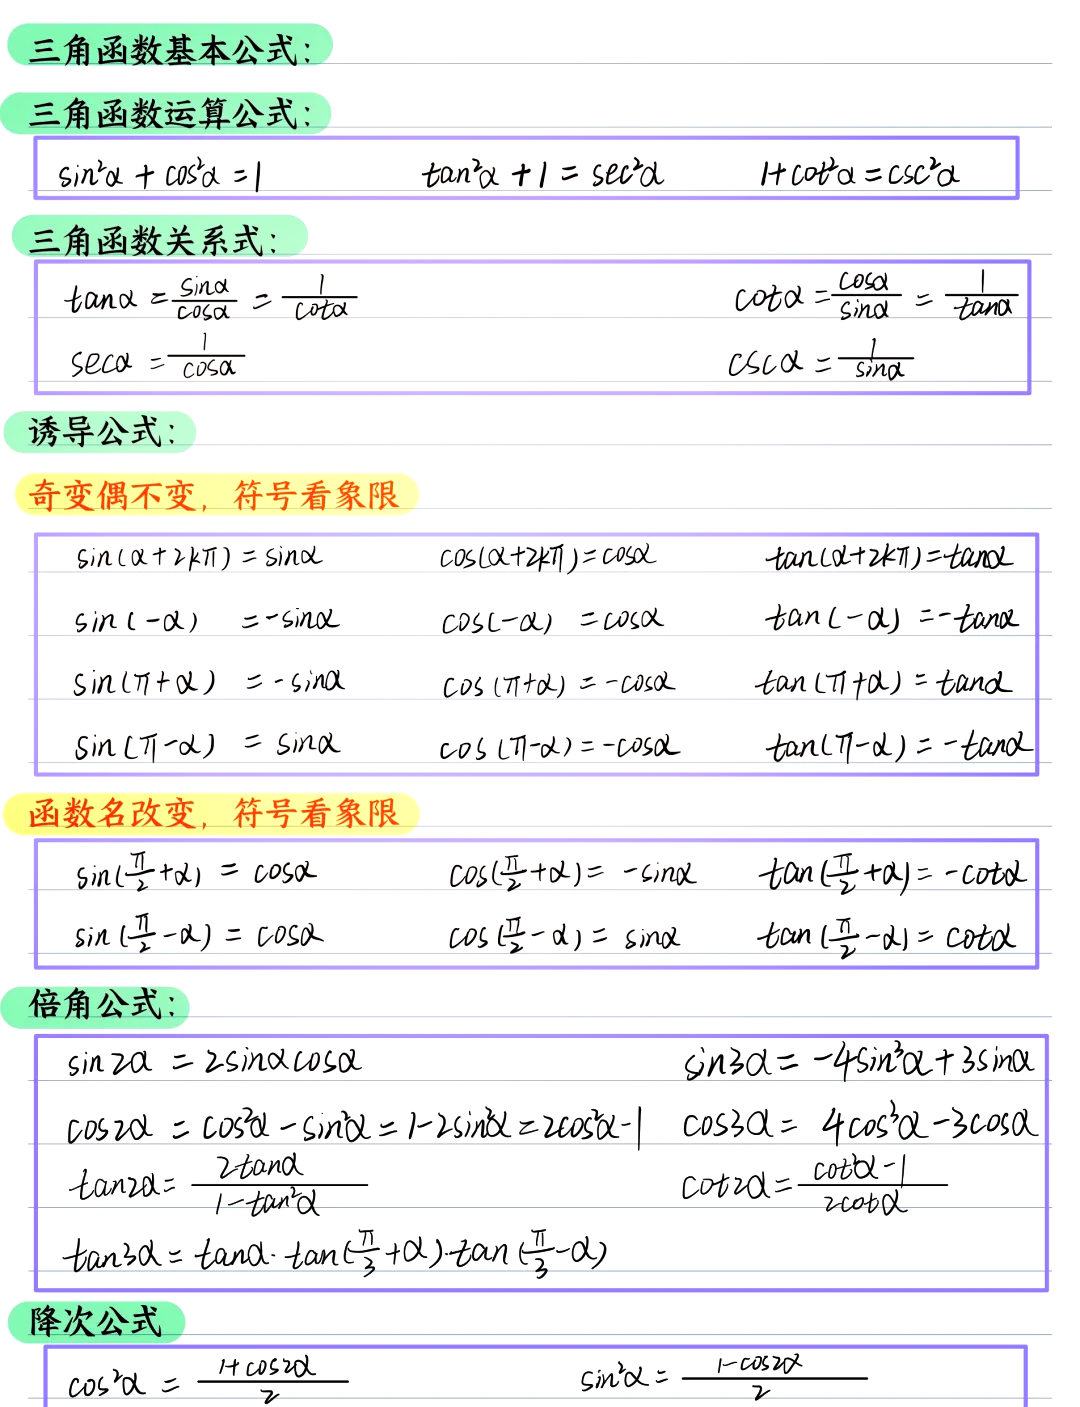 三角函数基本公式:
三角函数运算公式:
sin²α + cos²α = 1 tan²α + 1 = sec²α 1+cot²α = csc²α
三角函数关系式:
tanα = sinα/cosα = 1/cotα cotα = cosα/sinα = 1/tanα
secα = 1/cosα cscα = 1/sinα
诱导公式:
奇变偶不变，符号看象限
sin(α+2kπ) = sinα cos(α+2kπ) = cosα tan(α+2kπ) = tanα
sin(-α) = -sinα cos(-α) = cosα tan(-α) = -tanα
sin(π+α) = -sinα cos(π+α) = -cosα tan(π+α) = tanα
sin(π-α) = sinα cos(π-α) = -cosα tan(π-α) = -tanα
函数名改变，符号看象限
sin(π/2+α) = cosα cos(π/2+α) = -sinα tan(π/2+α) = -cotα
sin(π/2-α) = cosα cos(π/2-α) = sinα tan(π/2-α) = cotα
倍角公式:
sin2α = 2sinαcosα sin3α = -4sin³α+3sinα
cos2α = cos²α-sin²α = 1-2sin²α = 2cos²α-1 cos3α = 4cos³α-3cosα
tan2α = 2tanα/1-tan²α cot2α = cot²α-1/2cotα
tan3α = tanα·tan(π/3+α)·tan(π/3-α)
降次公式
cos²α = 1+cos2α/2 sin²α = 1-cos2α/2